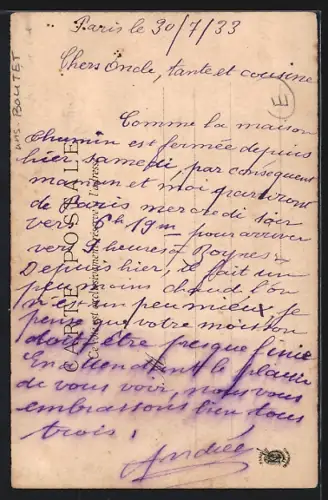 Paris le 30/7/33
Chers Oncle, tante et cousine
E
Comme la maison
Chemin est fermée depuis
hier samedi, par conséquent
maman et moi partirons
de Paris mercredi soir
vers 6h 19m pour arriver
vers heures à Boynes.
Depuis hier, il fait un
peu moins chaud l'on
n'est un peu mieux, je
pense que votre moisson
doit être presque finie
En attendant le plaisir
de vous voir, nous vous
embrassons bien tous
trois.
Andrée
MS-BOUTET
CARTE POSTALE
Ce côté est exclusivement réservé à l'adresse